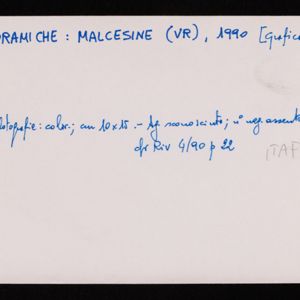 ORAMICHE : MALCESINE (VR), 1990 [grafica
fotografie: color.; cm 10x15 .- Ag sconosciuto; n° neg. assente
cfr Riv 4/90 p 22
ITAF